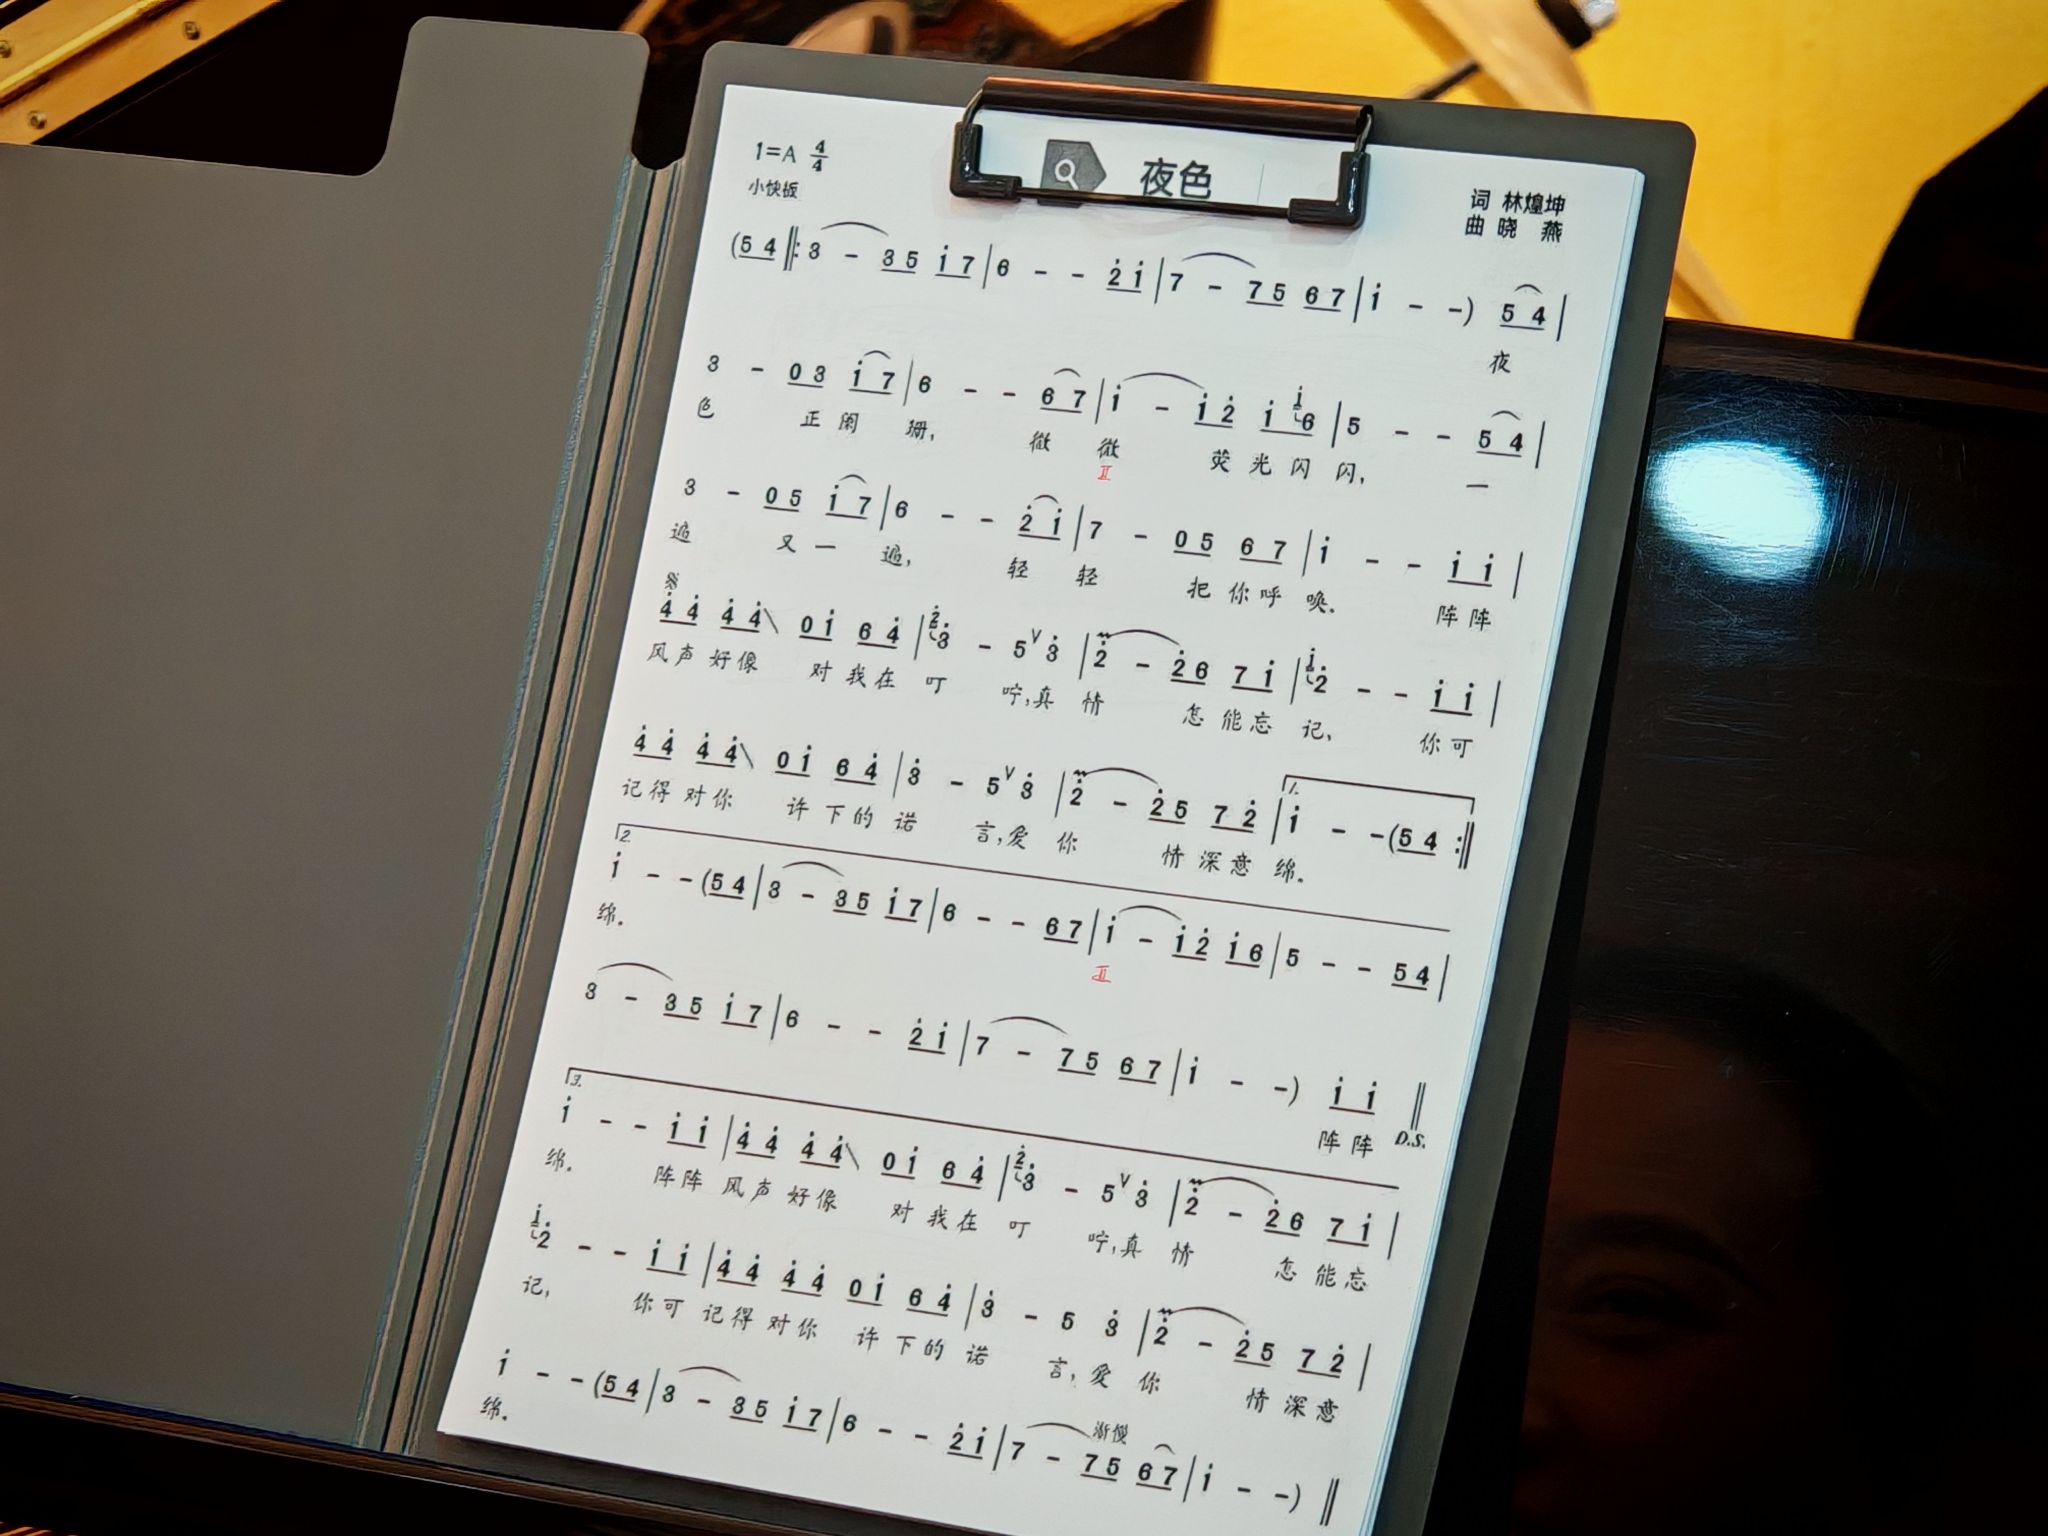 1=A 4/4
夜色
小快板
词 林煌坤
曲 晓 燕
(5 4 ‖: 3 - 3 5 i 7 | 6 - - 2̇ i | 7 - 7 5 6 7 | i - -) 5 4 |
夜
3 - 0 3 i 7 | 6 - - 6 7 | i - i 2̇ i i 6 | 5 - - 5 4 |
色 正 阑 珊, 微 微 荧 光 闪 闪, 一
II
3 - 0 5 i 7 | 6 - - 2̇ i | 7 - 0 5 6 7 | i - - i i |
遍 又 一 遍, 轻 轻 把 你 呼 唤. 阵 阵
𝄋
4̇ 4̇ 4̇ 4̇\ 0 i 6 4̇ | 2̇ 3̇ - 5 V 3̇ | 2̇ - 2̇ 6 7 i | i 2̇ - - i i |
风 声 好 像 对 我 在 叮 咛,真 情 怎 能 忘 记, 你 可
4̇ 4̇ 4̇ 4̇\ 0 i 6 4̇ | 3̇ - 5 V 3̇ | 2̇ - 2̇ 5 7 2̇ | 1. i - -(5 4 :‖
记 得 对 你 许 下 的 诺 言,爱 你 情 深 意 绵.
2.
i - -(5 4 | 3 - 3 5 i 7 | 6 - - 6 7 | i - i 2̇ i 6 | 5 - - 5 4 |
绵.
II
3 - 3 5 i 7 | 6 - - 2̇ i | 7 - 7 5 6 7 | i - -) i i ‖
阵 阵 D.S.
3.
i - - i i | 4̇ 4̇ 4̇ 4̇\ 0 i 6 4̇ | 2̇ 3̇ - 5 V 3̇ | 2̇ - 2̇ 6 7 i |
绵. 阵 阵 风 声 好 像 对 我 在 叮 咛,真 情 怎 能 忘
i 2̇ - - i i | 4̇ 4̇ 4̇ 4̇ 0 i 6 4̇ | 3̇ - 5 3̇ | 2̇ - 2̇ 5 7 2̇ |
记, 你 可 记 得 对 你 许 下 的 诺 言, 爱 你 情 深 意
渐慢
i - -(5 4 | 3 - 3 5 i 7 | 6 - - 2̇ i | 7 - 7 5 6 7 | i - -) ‖
绵.